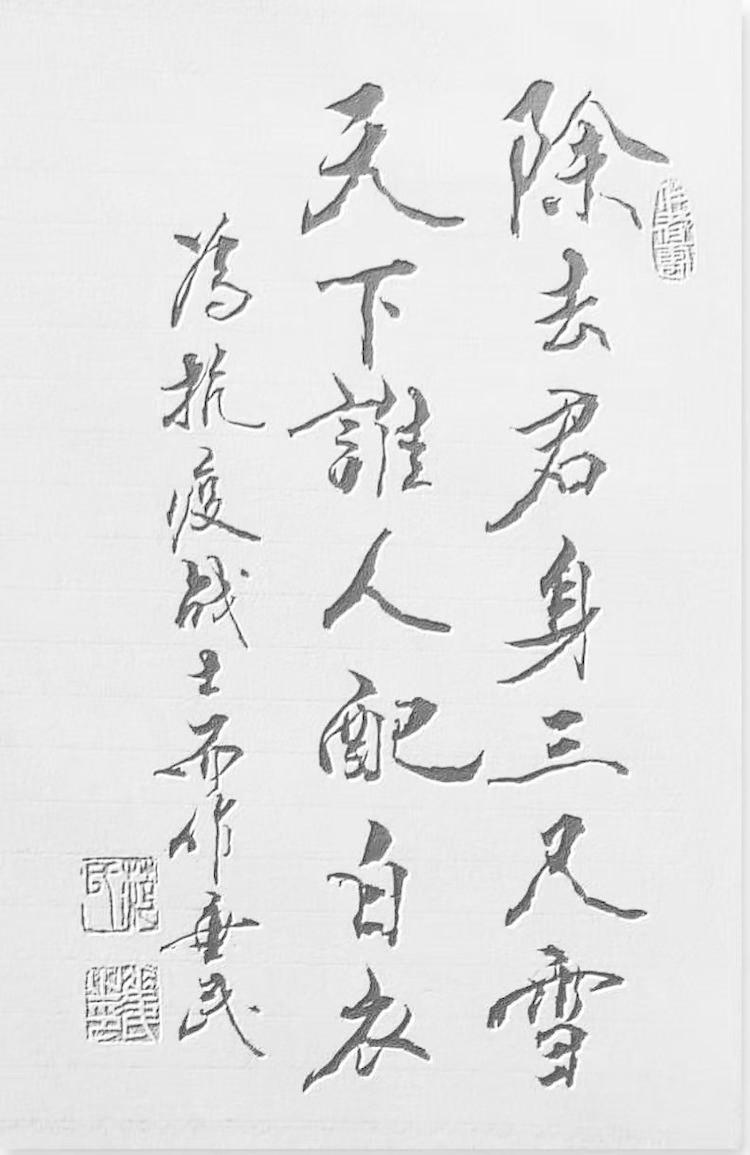 除去君身三尺雪
天下誰人配白衣
為抗疫战士而作垂民